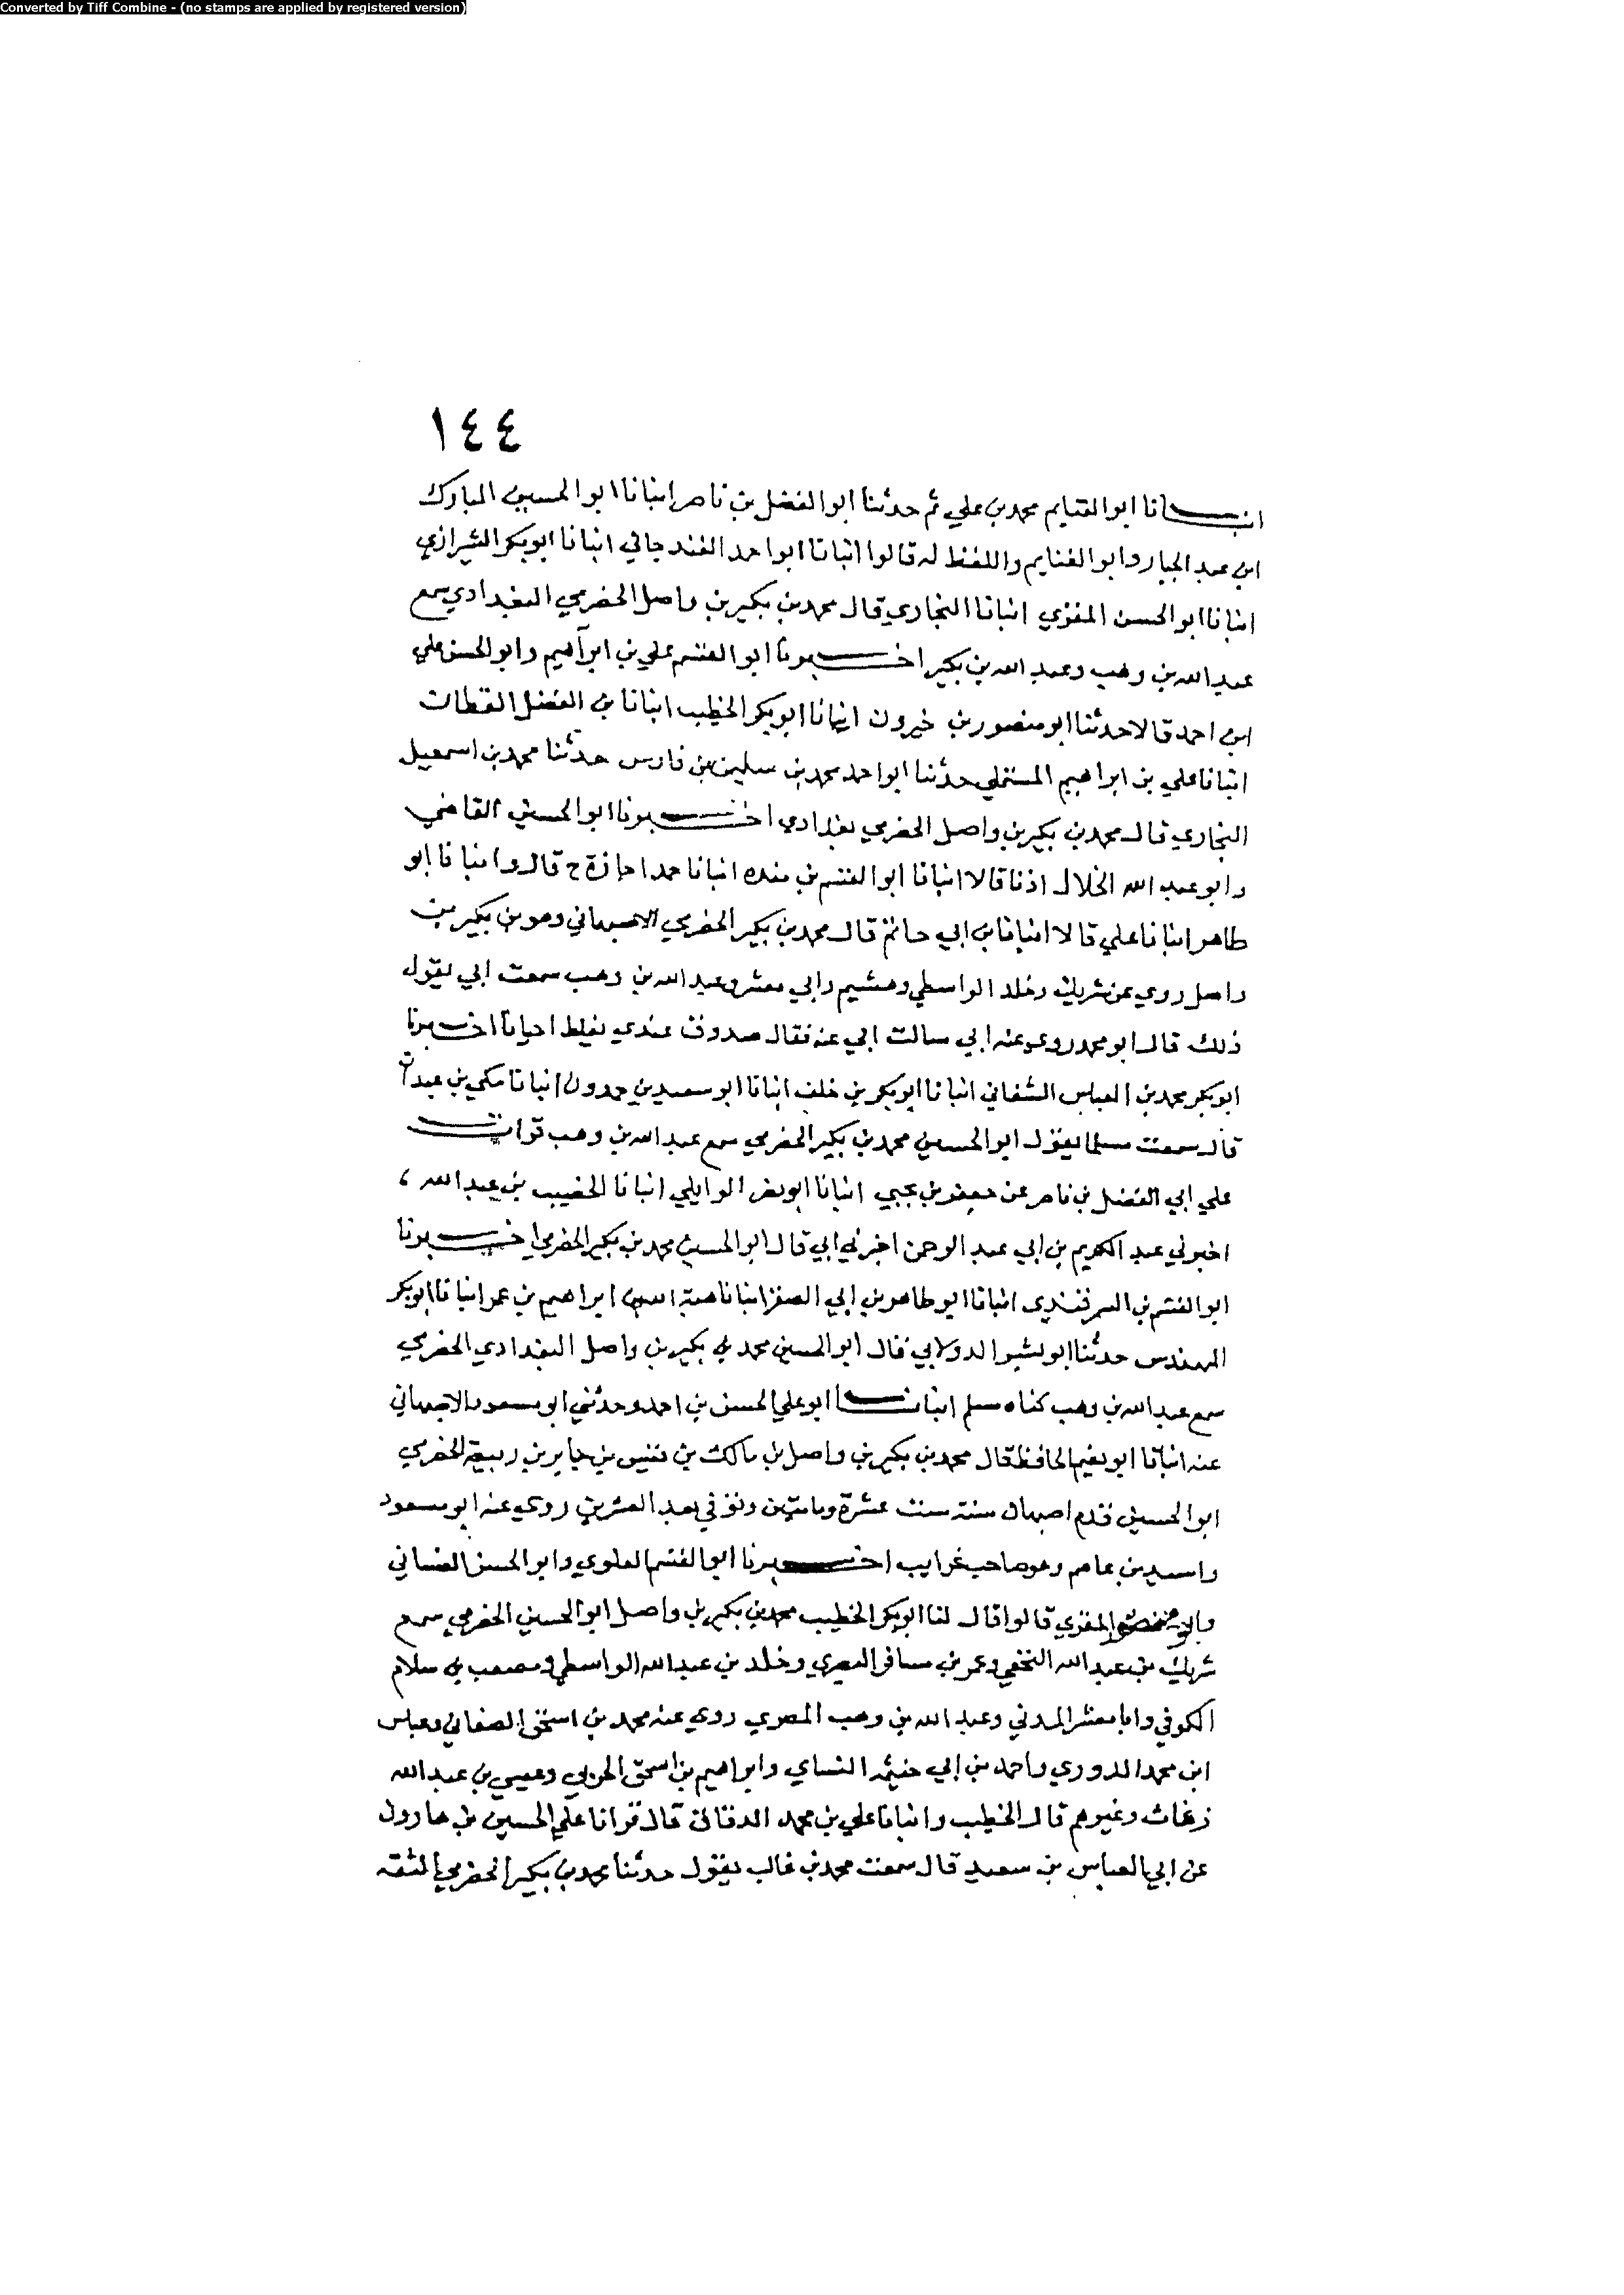 Converted by Tiff Combine - (no stamps are applied by registered version)
١٤٤
انبـــانا ابو الغنايم محمد بن علي ثم حدثنا ابو الفضل بن ناصر انبانا ابو الحسين المبارك
ابن عبد الجبار وابو الغنايم واللفظ له قالوا انبانا ابو احمد الغندجاني انبانا ابو بكر الشيرازي
انبانا ابو الحسن المقري انبانا البخاري قال محمد بن بكير بن واصل الحضرمي البغدادي سمع
عبد الله بن وهب وعبد الله بن بكير اخـــبرنا ابو القسم علي بن ابراهيم وابو الحسن علي
ابن احمد قالا حدثنا ابو منصور بن خيرون انبانا ابو بكر الخطيب انبانا بن الفضل القطان
انبانا علي بن ابراهيم المستملي حدثنا ابو احمد محمد بن سليمن بن فارس حدثنا محمد بن اسمعيل
البخاري قال محمد بن بكير بن واصل الحضرمي بغدادي اخـــبرنا ابو الحسين القاضي
وابو عبد الله الخلال اذنا قالا انبانا ابو القسم بن منده انبانا حمد اجازة ح قال وانبانا ابو
طاهر انبانا علي قالا انبانا بن ابي حاتم قال محمد بن بكير الحضرمي الاصبهاني وهو بن بكير بن
واصل روي عن شريك وخلد الواسطي وهشيم وابي معشر وعبد الله بن وهب سمعت ابي يقول
ذلك قال ابو محمد روى عنه ابي سالت ابي عنه فقال صدوق عندي يغلط احيانا اخـــبرنا
ابو بكر محمد بن العباس الشقاني انبانا ابو بكر بن خلف انبانا ابو سعيد بن حمدون انبانا مكي بن عبدان
قال سمعت مسلما يقول ابو الحسين محمد بن بكير الحضرمي سمع عبد الله بن وهب قرات
علي ابي الفضل بن ناصر عن جعفر بن يحيي انبانا ابو نصر الوايلي انبانا الخصيب بن عبد الله
اخبرني عبد الكريم بن ابي عبد الرحمن اخبرني ابي قال ابو الحسين محمد بن بكير الحضرمي اخـــبرنا
ابو القسم بن السمرقندي انبانا ابو طاهر بن ابي الصقر انبانا هبة الله بن ابراهيم بن عمر انبانا ابو بكر
المهندس حدثنا ابو بشر الدولابي قال ابو الحسين محمد بن بكير بن واصل البغدادي الحضرمي
سمع عبد الله بن وهب كناه مسلم انبانـــا ابو علي الحسن بن احمد وحدثني ابو مسعود الاصبهاني
عنه انبانا ابو نعيم الحافظ قال محمد بن بكير بن واصل بن مالك بن قيس بن جابر بن ربيعة الحضرمي
ابو الحسين قدم اصبهان سنة ست عشرة وماتين وتوفي بعد العشرين روى عنه ابو مسعود
واسيد بن عاصم وهو صاحب غرايب اخـــبرنا ابو القسم العلوي وابو الحسن الغساني
وابو منصور المقري قالوا قال لنا ابو بكر الخطيب محمد بن بكير بن واصل ابو الحسين الحضرمي سمع
شريك بن عبد الله النخعي وعمر بن مسافر البصري وخلد بن عبد الله الواسطي ومصعب بن سلام
الكوفي وابا معشر المدني وعبد الله بن وهب المصري روي عنه محمد بن اسحق الصغاني وعباس
ابن محمد الدوري واحمد بن ابي خيثمه النساي وابراهيم بن اسحق الحربي وعيسي بن عبد الله
زغاث وغيرهم قال الخطيب وانبانا علي بن محمد الدقاق قال قرانا علي الحسين بن هارون
عن ابي العباس بن سعيد قال سمعت محمد بن غالب يقول حدثنا محمد بن بكير الحضرمي الثقه